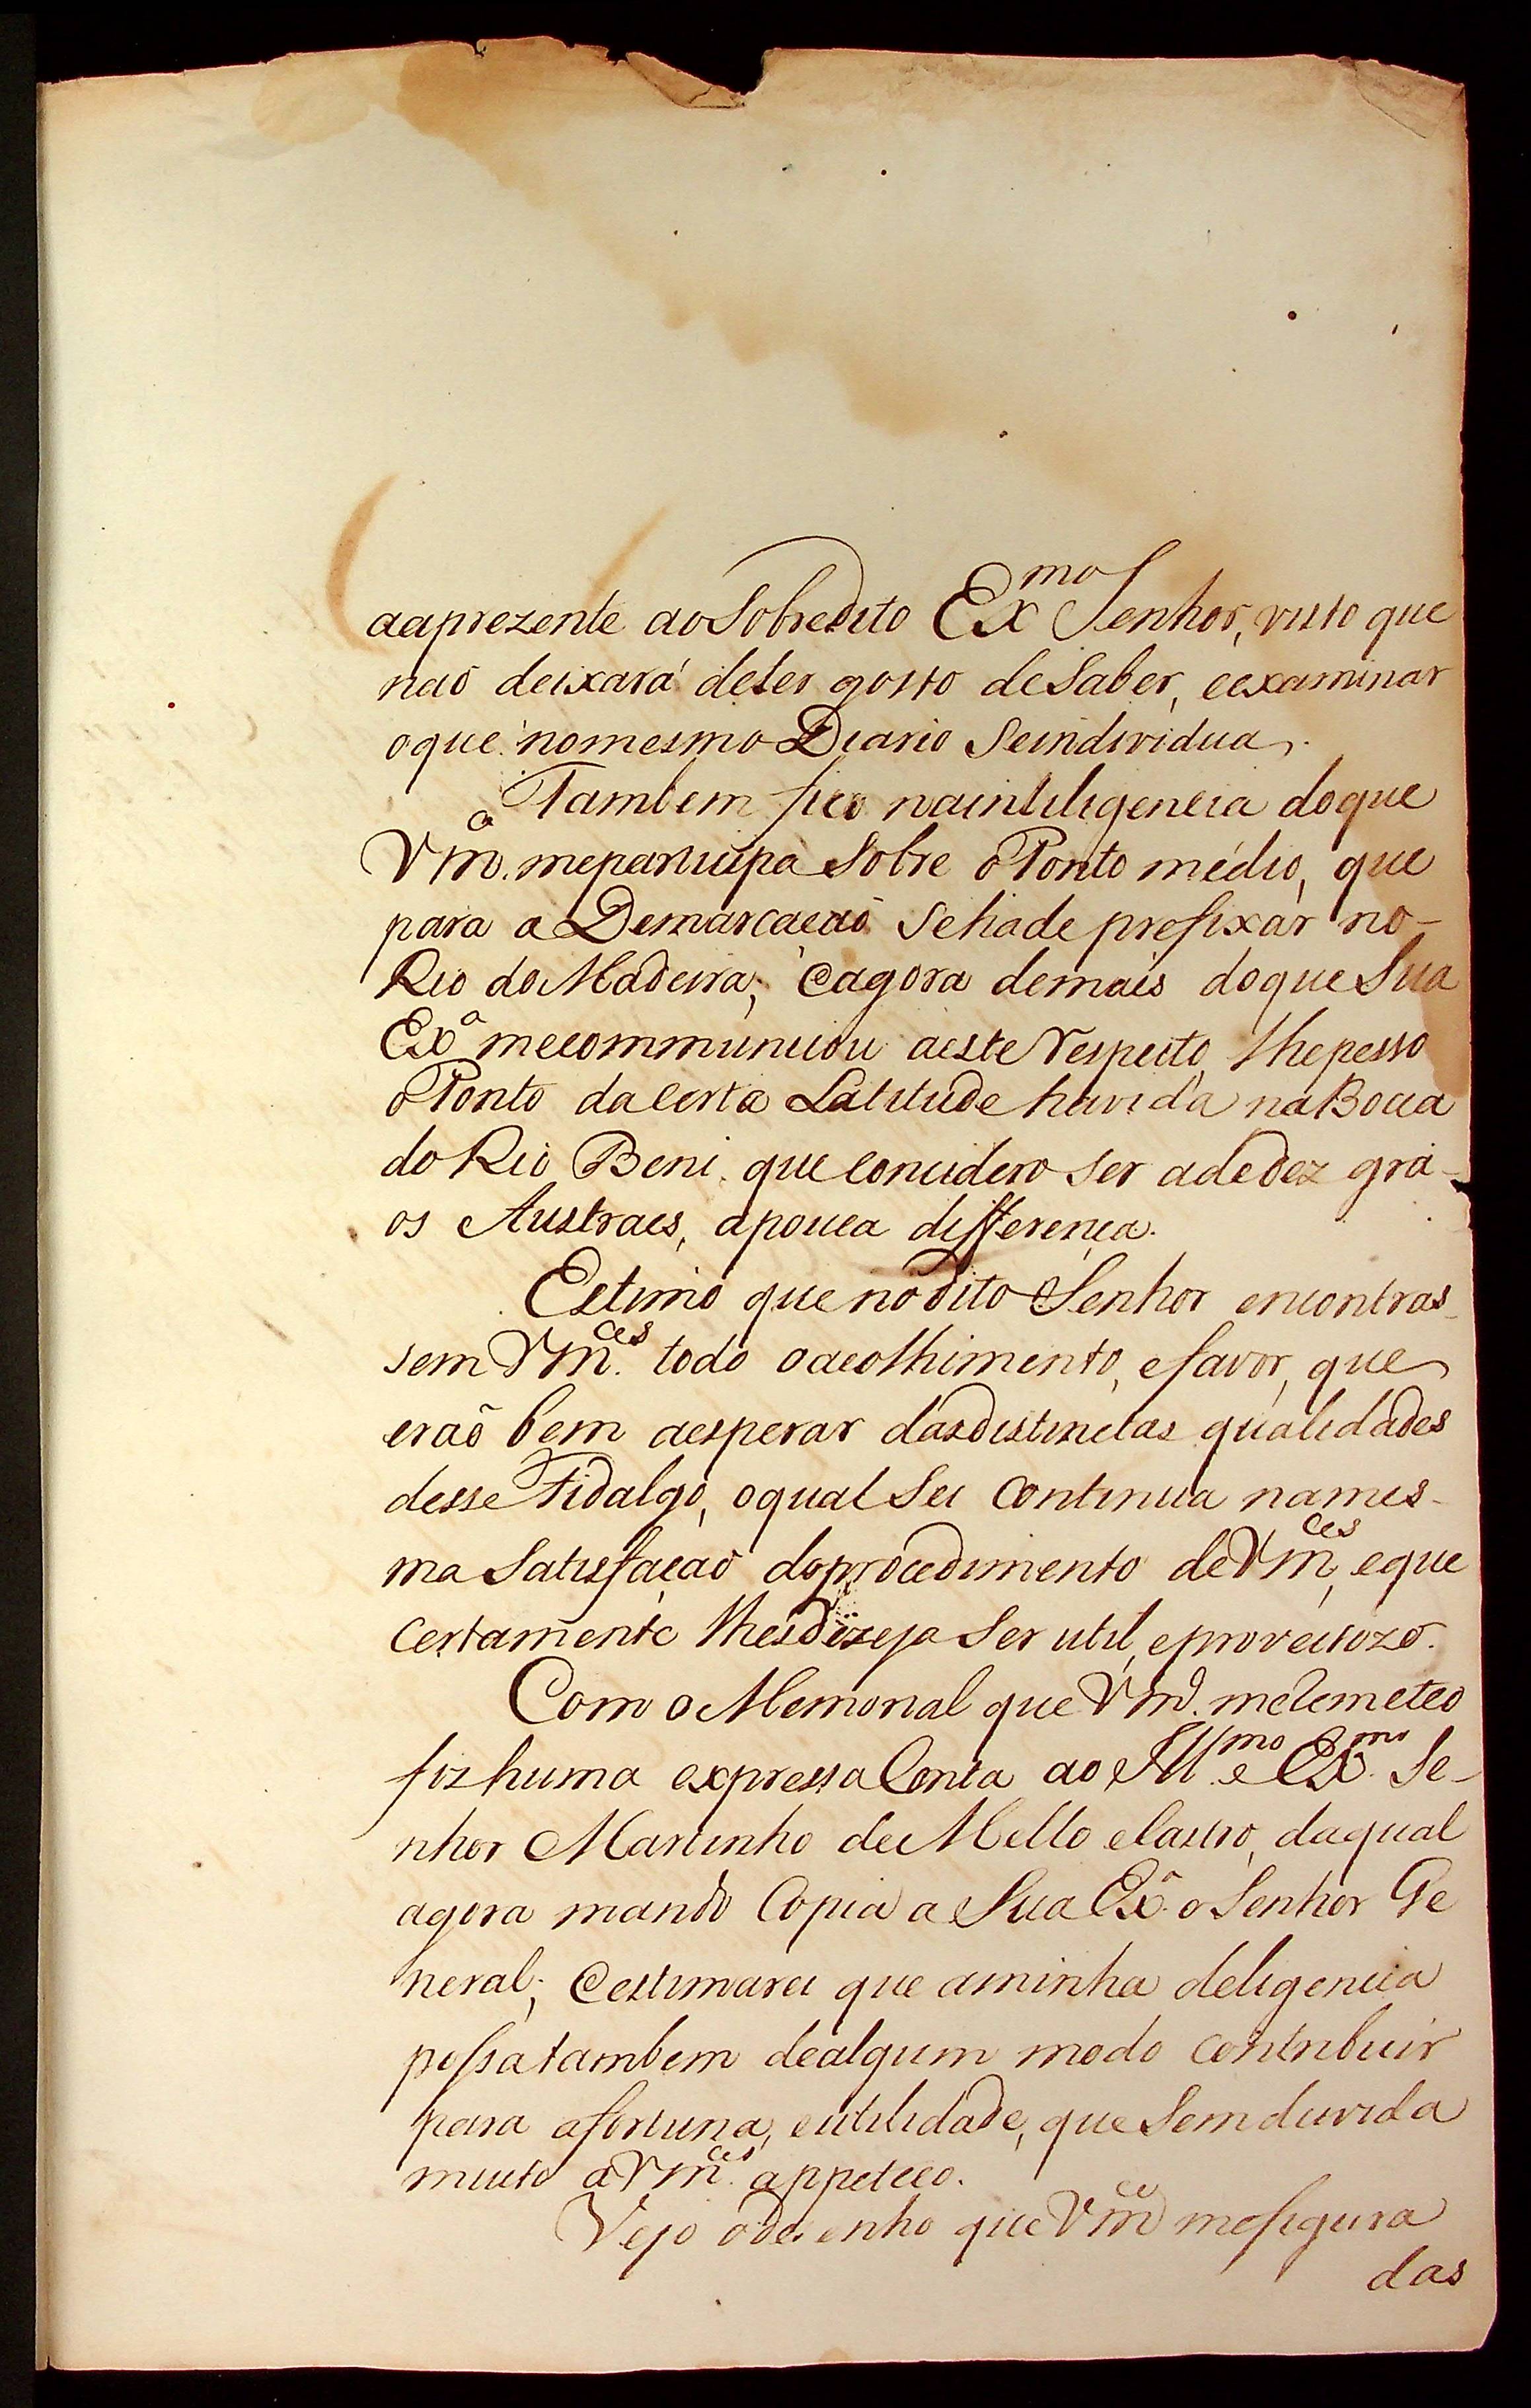 aaprezente ao Sobredito Ex.mo Senhor, visto que
naõ deixará deter gosto de Saber, eexaminar
oque nomesmo Diario Seindividua.
Tambem fico naintiligencia doque
Vm.ce meparticipa Sobre o Ponto médio, que
para a Demarcaçaõ Sehade prefixar no
Rio da Madeira; eagora demais doque Sua
Ex.a mecommunicou aeste respeito, lhepesso
o Ponto dacerta Latitude havida na Bocca
do Rio Beni, que concidero Ser adedez grá-
os Austraes, apouca differença.
Estimo que nodito Senhor encontras-
sem Vm.ces todo oacolhimento, efavor, que
eraõ bem aesperar dasdistinctas qualidades
desse Fidalgo, oqual Sei Continua names-
ma Satisfaçaõ doprocedimento deVm.ces, eque
Certamente lhesdezeja Ser util, eproveitozo.
Com o Memorial que Vm.ce meremeteo
fiz huma expressa Conta ao Ill.mo e Ex.mo Se-
nhor Martinho de Mello eCastro, daqual
agora mando Copia a Sua Ex.a o Senhor Ge
neral; eestimarei que aminha deligencia
possatambem dealgum modo contribuir
para afortuna, eutilidade, que Semduvida
muito a Vm.ces appeteço.
Vejo odezenho que Vm.ce mefigura
das